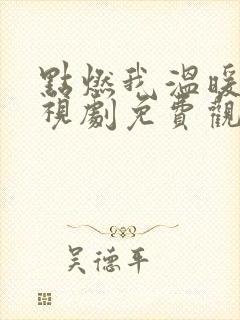 點燃我溫暖
視劇免費觀
吳德平